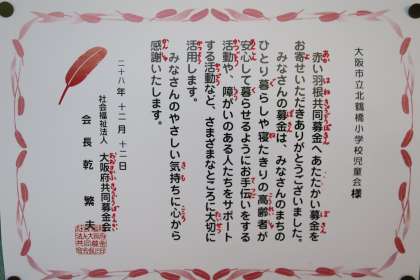 大阪市立北鶴橋小学校児童会様
赤い羽根共同募金へあたたかい募金を
お寄せいただきありがとうございました。
みなさんの募金は、みなさんのまちの
ひとり暮らしや寝たきりの高齢者が
安心して暮らせるようにお手伝いをする
活動や、障がいのある人たちをサポート
する活動など、さまざまなところに大切に
活用します。
みなさんのやさしい気持ちに心から
感謝いたします。
二十八年 十二月 十二日
社会福祉法人 大阪府共同募金会
会長 乾 繁夫